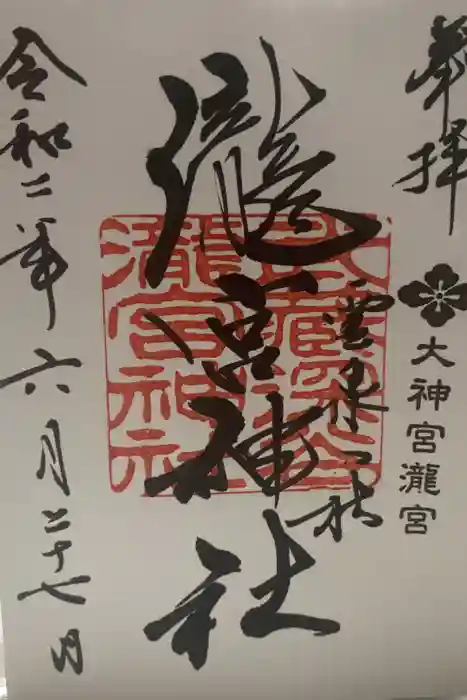 奉拝
大神宮瀧宮
武蔵深谷
瀧宮神社
瀧宮神社
令和二年六月二十七日